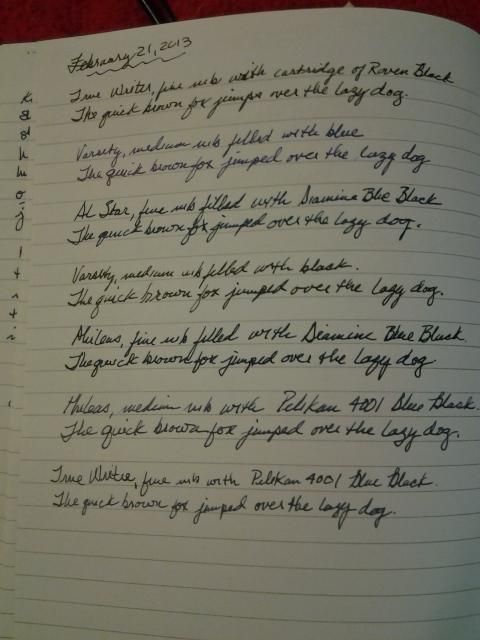 February 21, 2013
True Writer, fine nib with cartridge of Raven Black
The quick brown fox jumps over the lazy dog.
Varsity, medium nib filled with blue
The quick brown fox jumped over the lazy dog
Al Star, fine nib filled with Diamine Blue Black
The quick brown fox jumped over the lazy dog.
Varsity, medium nib filled with black.
The quick brown fox jumped over the lazy dog.
Phileas, fine nib filled with Diamine Blue Black.
The quick brown fox jumped over the lazy dog
Phileas, medium nib with Pelikan 4001 Blue Black.
The quick brown fox jumped over the lazy dog.
True Writer, fine nib with Pelikan 4001 Blue Black.
The quick brown fox jumped over the lazy dog.